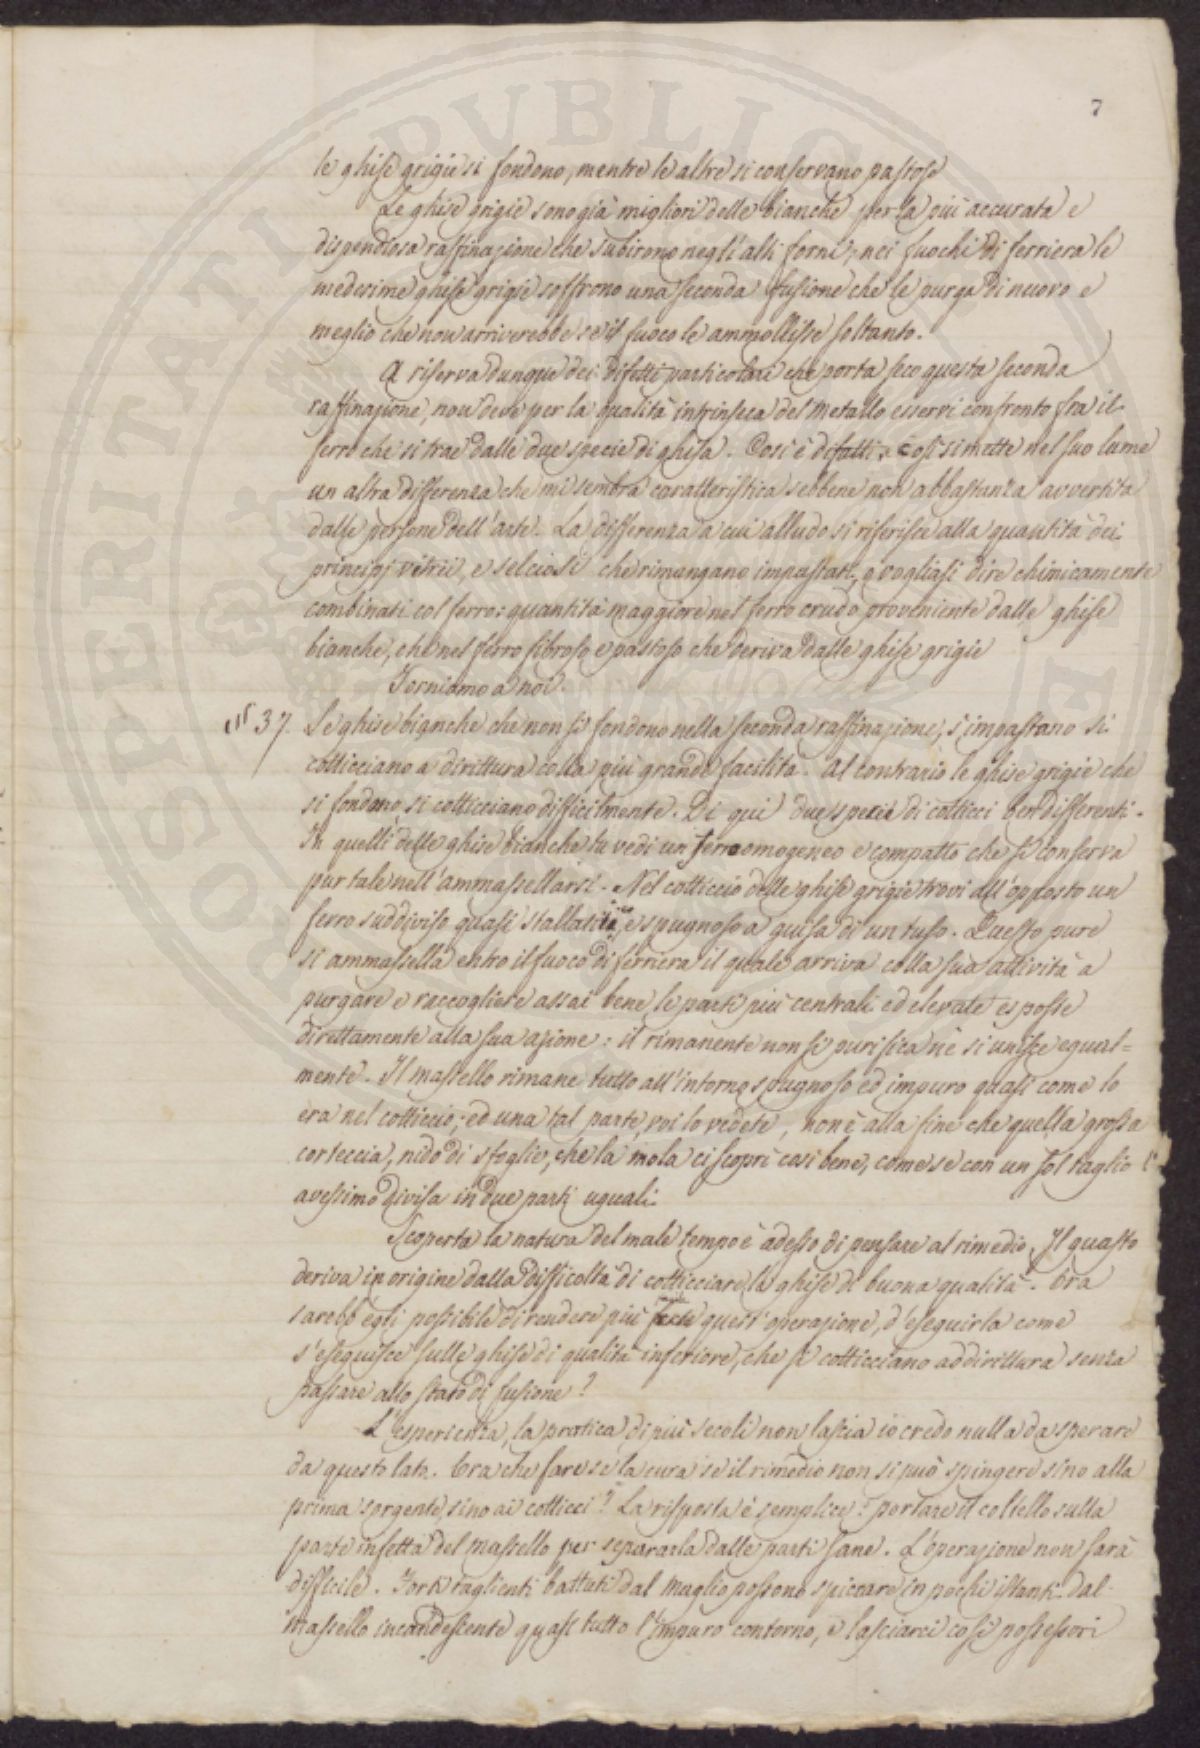 7
le ghise grigie si fondono, mentre le altre si conservano pastose
Le ghise grigie sono già migliori delle bianche per la più accurata e
dispendiosa raffinazione che subirono negl'alti forni; nei fuochi di ferriera le
medesime ghise grigie soffrono una seconda fusione che le purga di nuovo e
meglio che non arriverebbe se il fuoco le ammollisse soltanto.
A riserva dunque dei difetti particolari che porta seco questa seconda
raffinazione, non deve per la qualità intrinseca del metallo esservi confronto fra il
ferro che si trae dalle due specie di ghisa. Così è difatti, e così si mette nel suo lume
un altra differenza che mi sembra caratteristica sebbene non abbastanza avvertita
dalle persone dell'arte. La differenza a cui alludo si riferisce alla quantità dei
principj vitrei, e selciosi che rimangano impastati, o vogliasi dire chimicamente
combinati col ferro: quantità maggiore nel ferro crudo proveniente dalle ghise
bianche, che nel ferro fibroso e pastoso che deriva dalle ghise grigie
Torniamo a noi.
N 37. Le ghise bianche che non si fondono nella seconda raffinazione, s'impastano si
cotticciano a dirittura colla più grande facilità. Al contrario le ghise grigie che
si fondono, si cotticciano difficilmente. Di qui due specie di cotticci ben differenti.
In quelli delle ghise bianche tu vedi un ferro omogeneo e compatto che si conserva
pur tale nell'ammassellarsi. Nel cotticcio delle ghise grigie trovi all'opposto un
ferro suddiviso quasi stallatitico e spugnoso a guisa di un tufo. Questo pure
si ammassella entro il fuoco di ferriera il quale arriva colla sua attività a
purgare e raccogliere assai bene le parti più centrali ed elevate esposte
direttamente alla sua azione: il rimanente non si purifica nè si unisce egual=
mente. Il massello rimane tutto all'intorno spugnoso ed impuro quasi come lo
era nel cotticcio; ed una tal parte, voi lo vedete, non è alla fine che quella grossa
corteccia, nido di sfoglie, che la mola ci scoprì così bene, come se con un sol taglio l'
avessimo divisa in due parti uguali.
Scoperta la natura del male tempo è adesso di pensare al rimedio. Il guasto
deriva in origine dalla difficoltà di cotticciare la ghise di buona qualità. Ora
sarebb'egli possibile di rendere più facile quest'operazione, d'eseguirla come
s'eseguisce sulle ghise di qualità inferiore, che si cotticciano addirittura senza
passare allo stato di fusione?
L'esperienza, la pratica di più secoli non lascia io credo nulla da sperare
da questo lato. Ora che fare se la cura se il rimedio non si può spingere sino alla
prima sorgente, sino ai cotticci? La risposta è semplice: portare il coltello sulla
parte infetta del massello per separarla dalle parti sane. L'operazione non sarà
difficile. Forti taglienti battuti dal maglio possono spiccare in pochi istanti dal
massello incandescente quasi tutto l'impuro contorno, e lasciarci così possessori